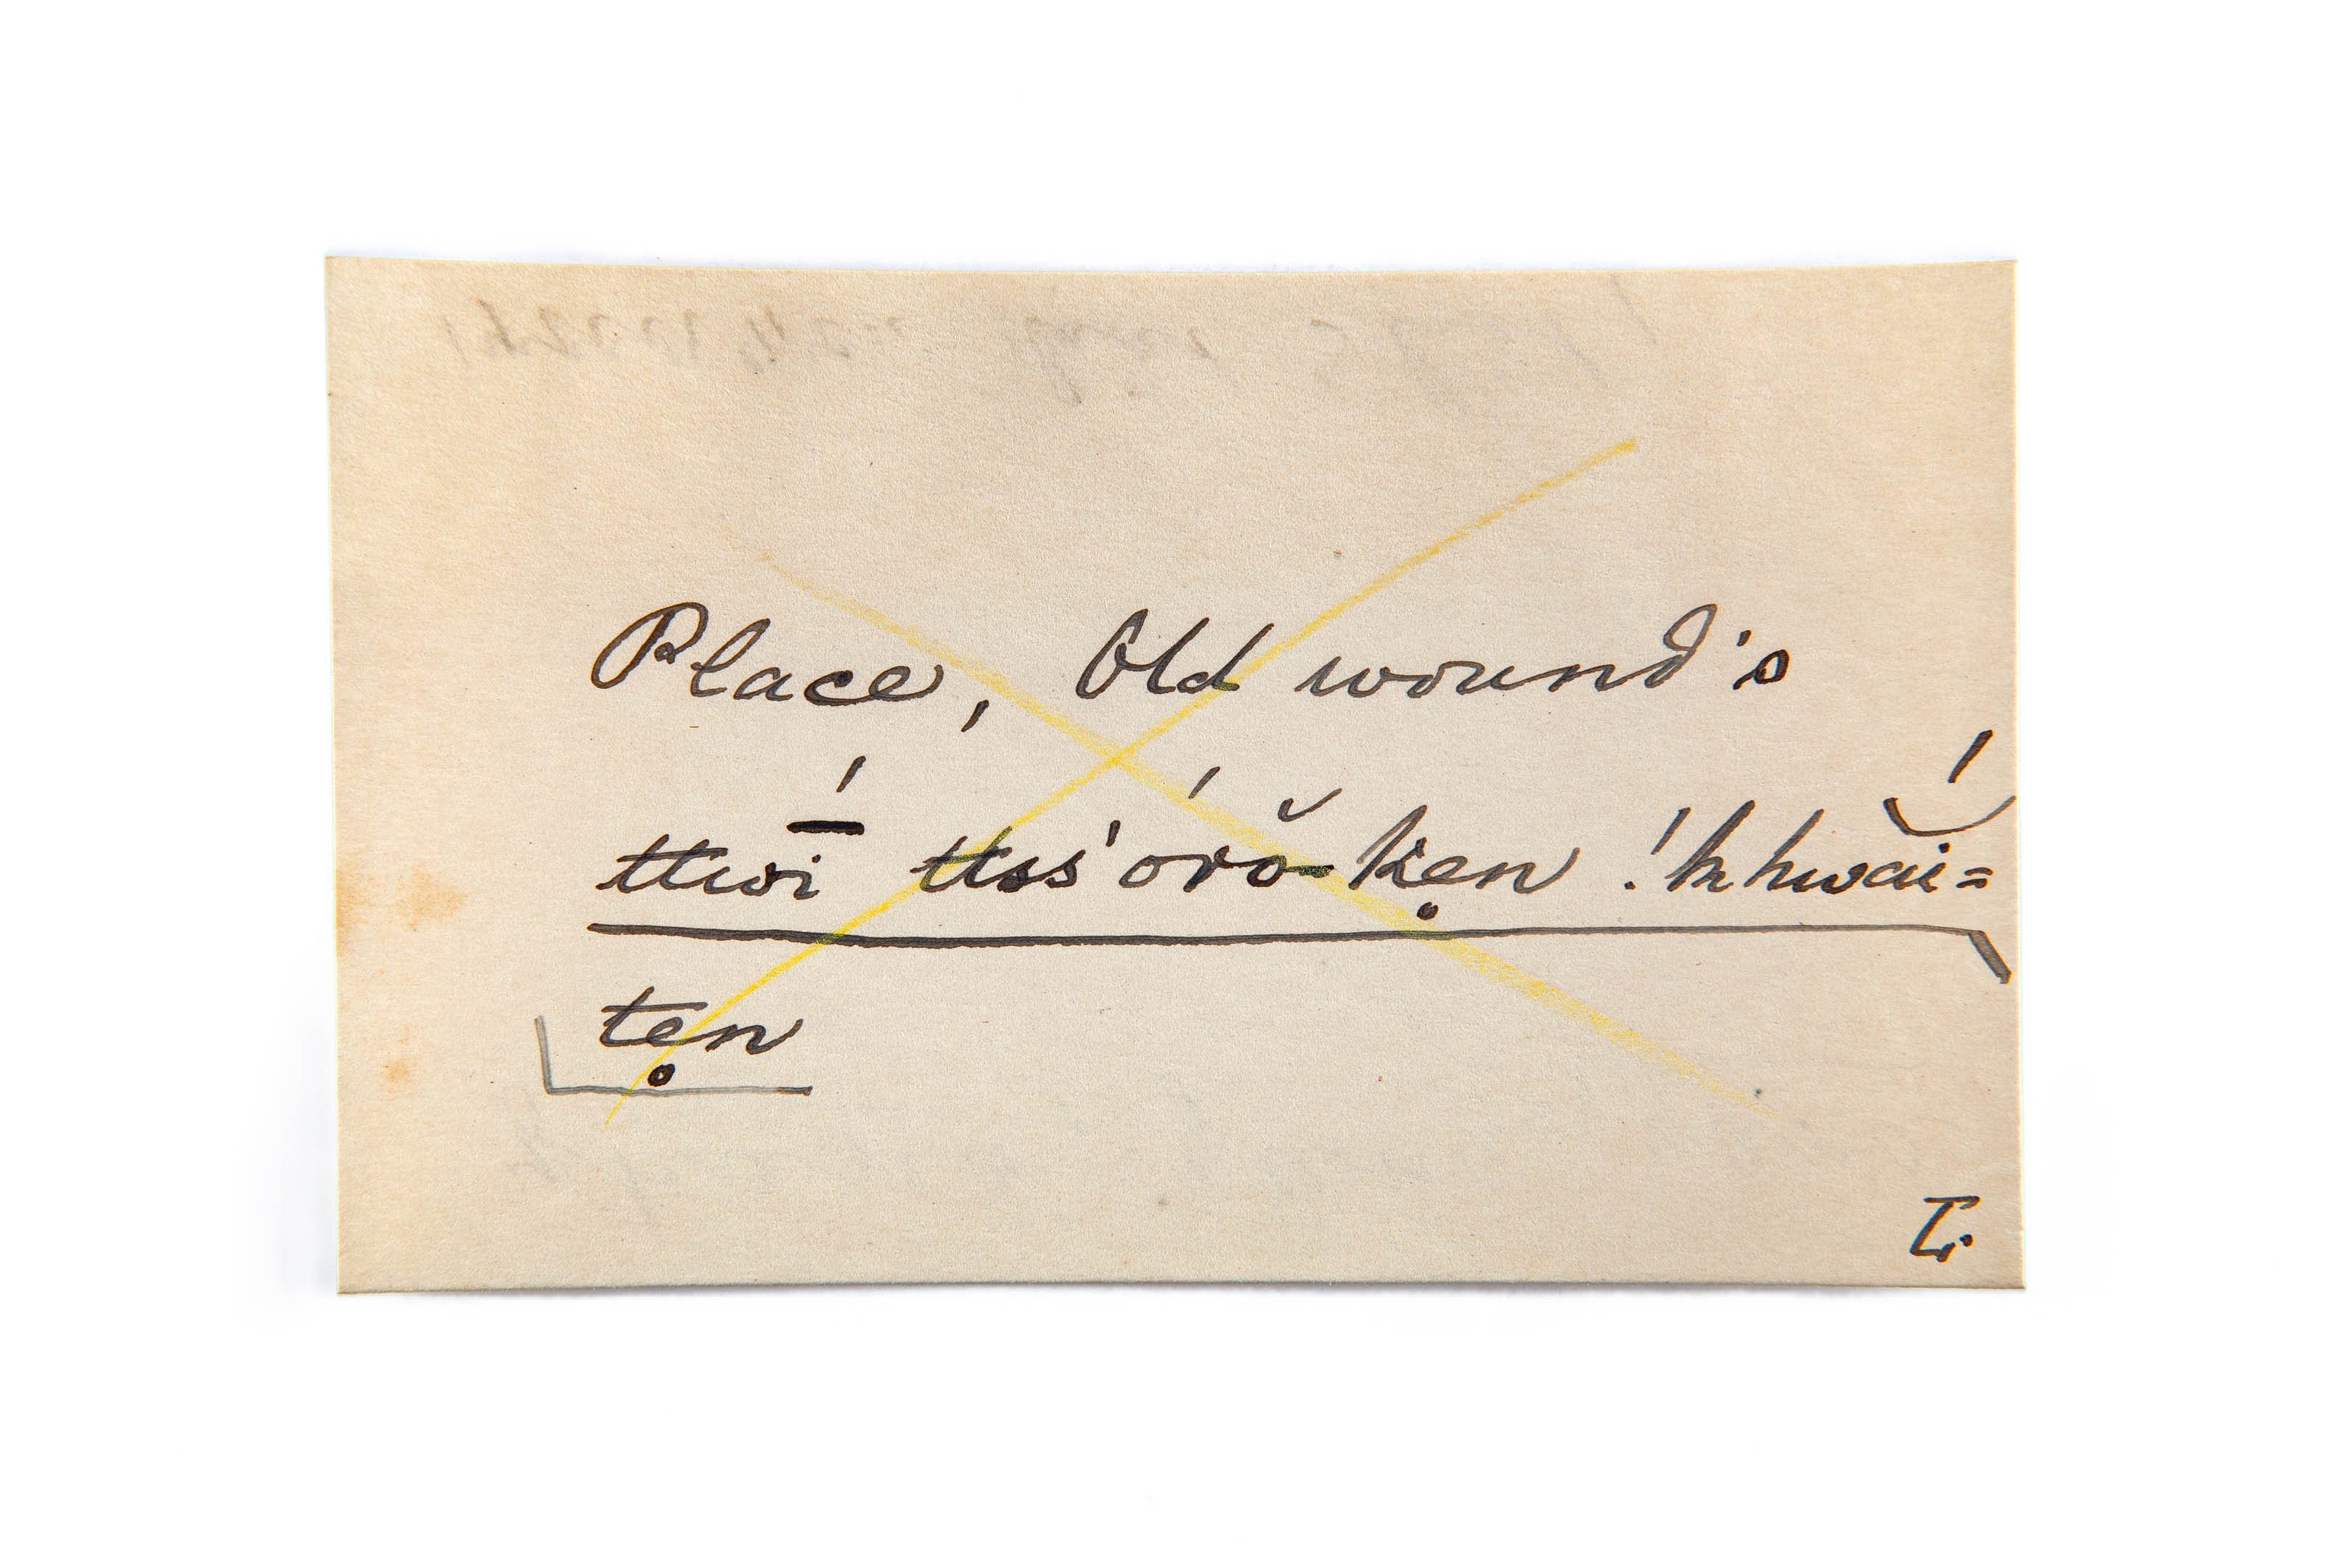 Place, Old wound's
ttwī́ ttss'órŏ-ken̥ !khwắi=
ten̥
T.